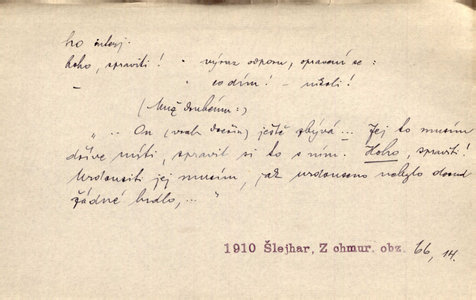 ho interj.
hoho, spraviti! - výraz odporu, opravení se:
- " co dím! - nikoli!
(Muž druhému:)
" .. On (vrah dcerin) ještě zbývá... Jej to musím
dříve míti, spravit si to s ním. Hoho, spraviti!
Urdousiti jej musím, jak urdouseno nebylo dosud
žádné hrdlo,... "
1910 Šlejhar, Z chmur. obz. 66, 14.